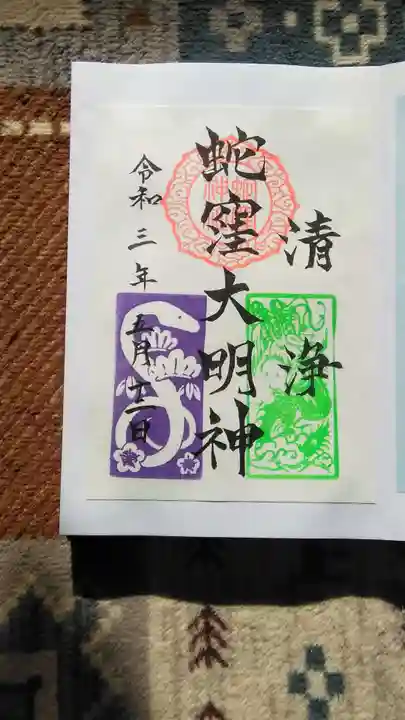 清浄
蛇窪大明神
令和三年五月十二日